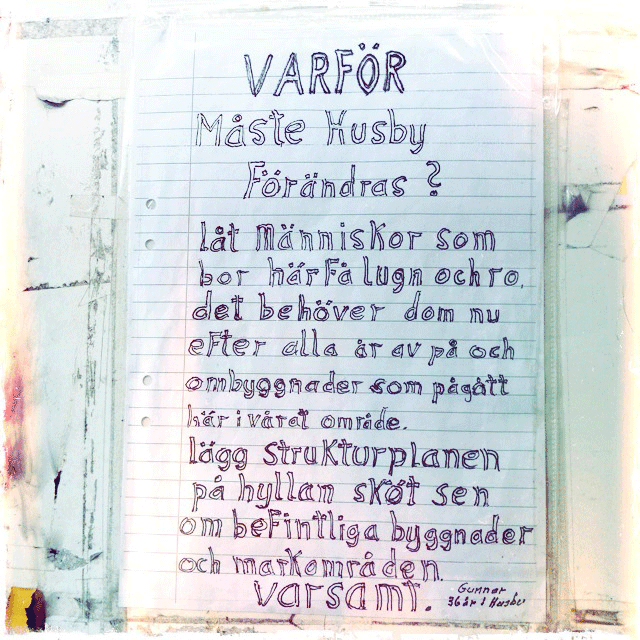 VARFÖR
Måste Husby
Förändras ?
låt Människor som
bor här Få lugn och ro.
det behöver dom nu
efter alla år av på och
ombyggnader som pågått
här i vårat område.
lägg strukturplanen
på hyllan sköt sen
om befintliga byggnader
och markområden.
varsamt.
Gunnar
36 år i Husby